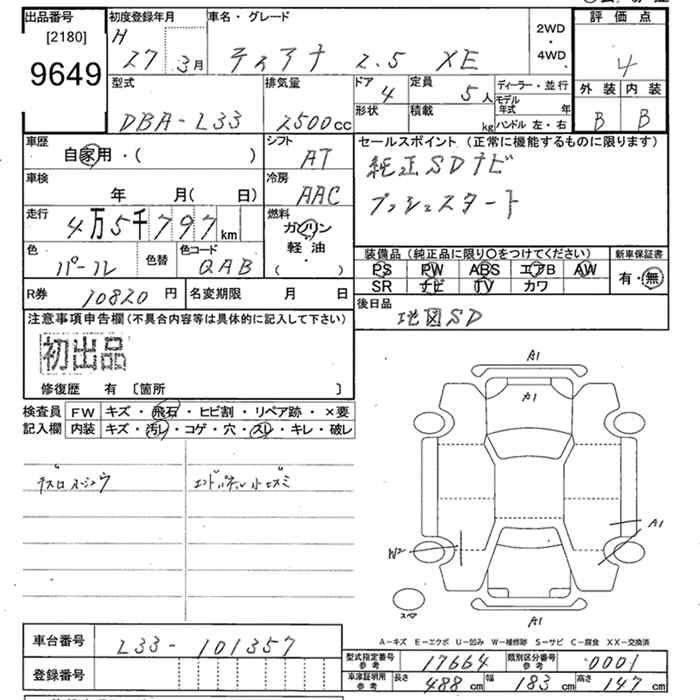 出品番号 [2180] 9649
初度登録年月 H 27 3月
車名・グレード ティアナ 2.5 XE
2WD・4WD
評価点 4
外装 B 内装 B
型式 DBA-L33
排気量 2500cc
ドア 4
定員 5人
形状
積載 kg
ディーラー・並行
モデル年式 年
ハンドル 左・右
車歴 自家用・( )
シフト AT
セールスポイント (正常に機能するものに限ります)
純正SDナビ
プッシュスタート
車検 年 月( 日)
冷房 AAC
走行 4万5千797km
燃料 ガソリン 軽油 ( ・ )
色 パール
色替
色コード QAB
装備品(純正品に限り〇をつけてください)
PS PW ABS エアB AW
SR ナビ TV カワ
新車保証書 有・無
R券 10820円
名変期限 月 日
後日品 地図SD
注意事項申告欄(不具合内容等は具体的に記入して下さい)
初出品
修復歴 有 〔箇所 〕
検査員 FW キズ・飛石・ヒビ割・リペア跡・×要
記入欄 内装 キズ・汚レ・コゲ・穴・スレ・キレ・破レ
エンドパネル小ヒズミ
A1
A1
A1
W2
A1
スペア
A−キズ E−エクボ U−凹み W−補修跡 S−サビ C−腐食 XX−交換済
車台番号 L33-101357
登録番号
型式指定番号 参考 17664
類別区分番号 参考 0001
車庫証明用 参考 長さ 488cm 幅 183cm 高さ 147cm